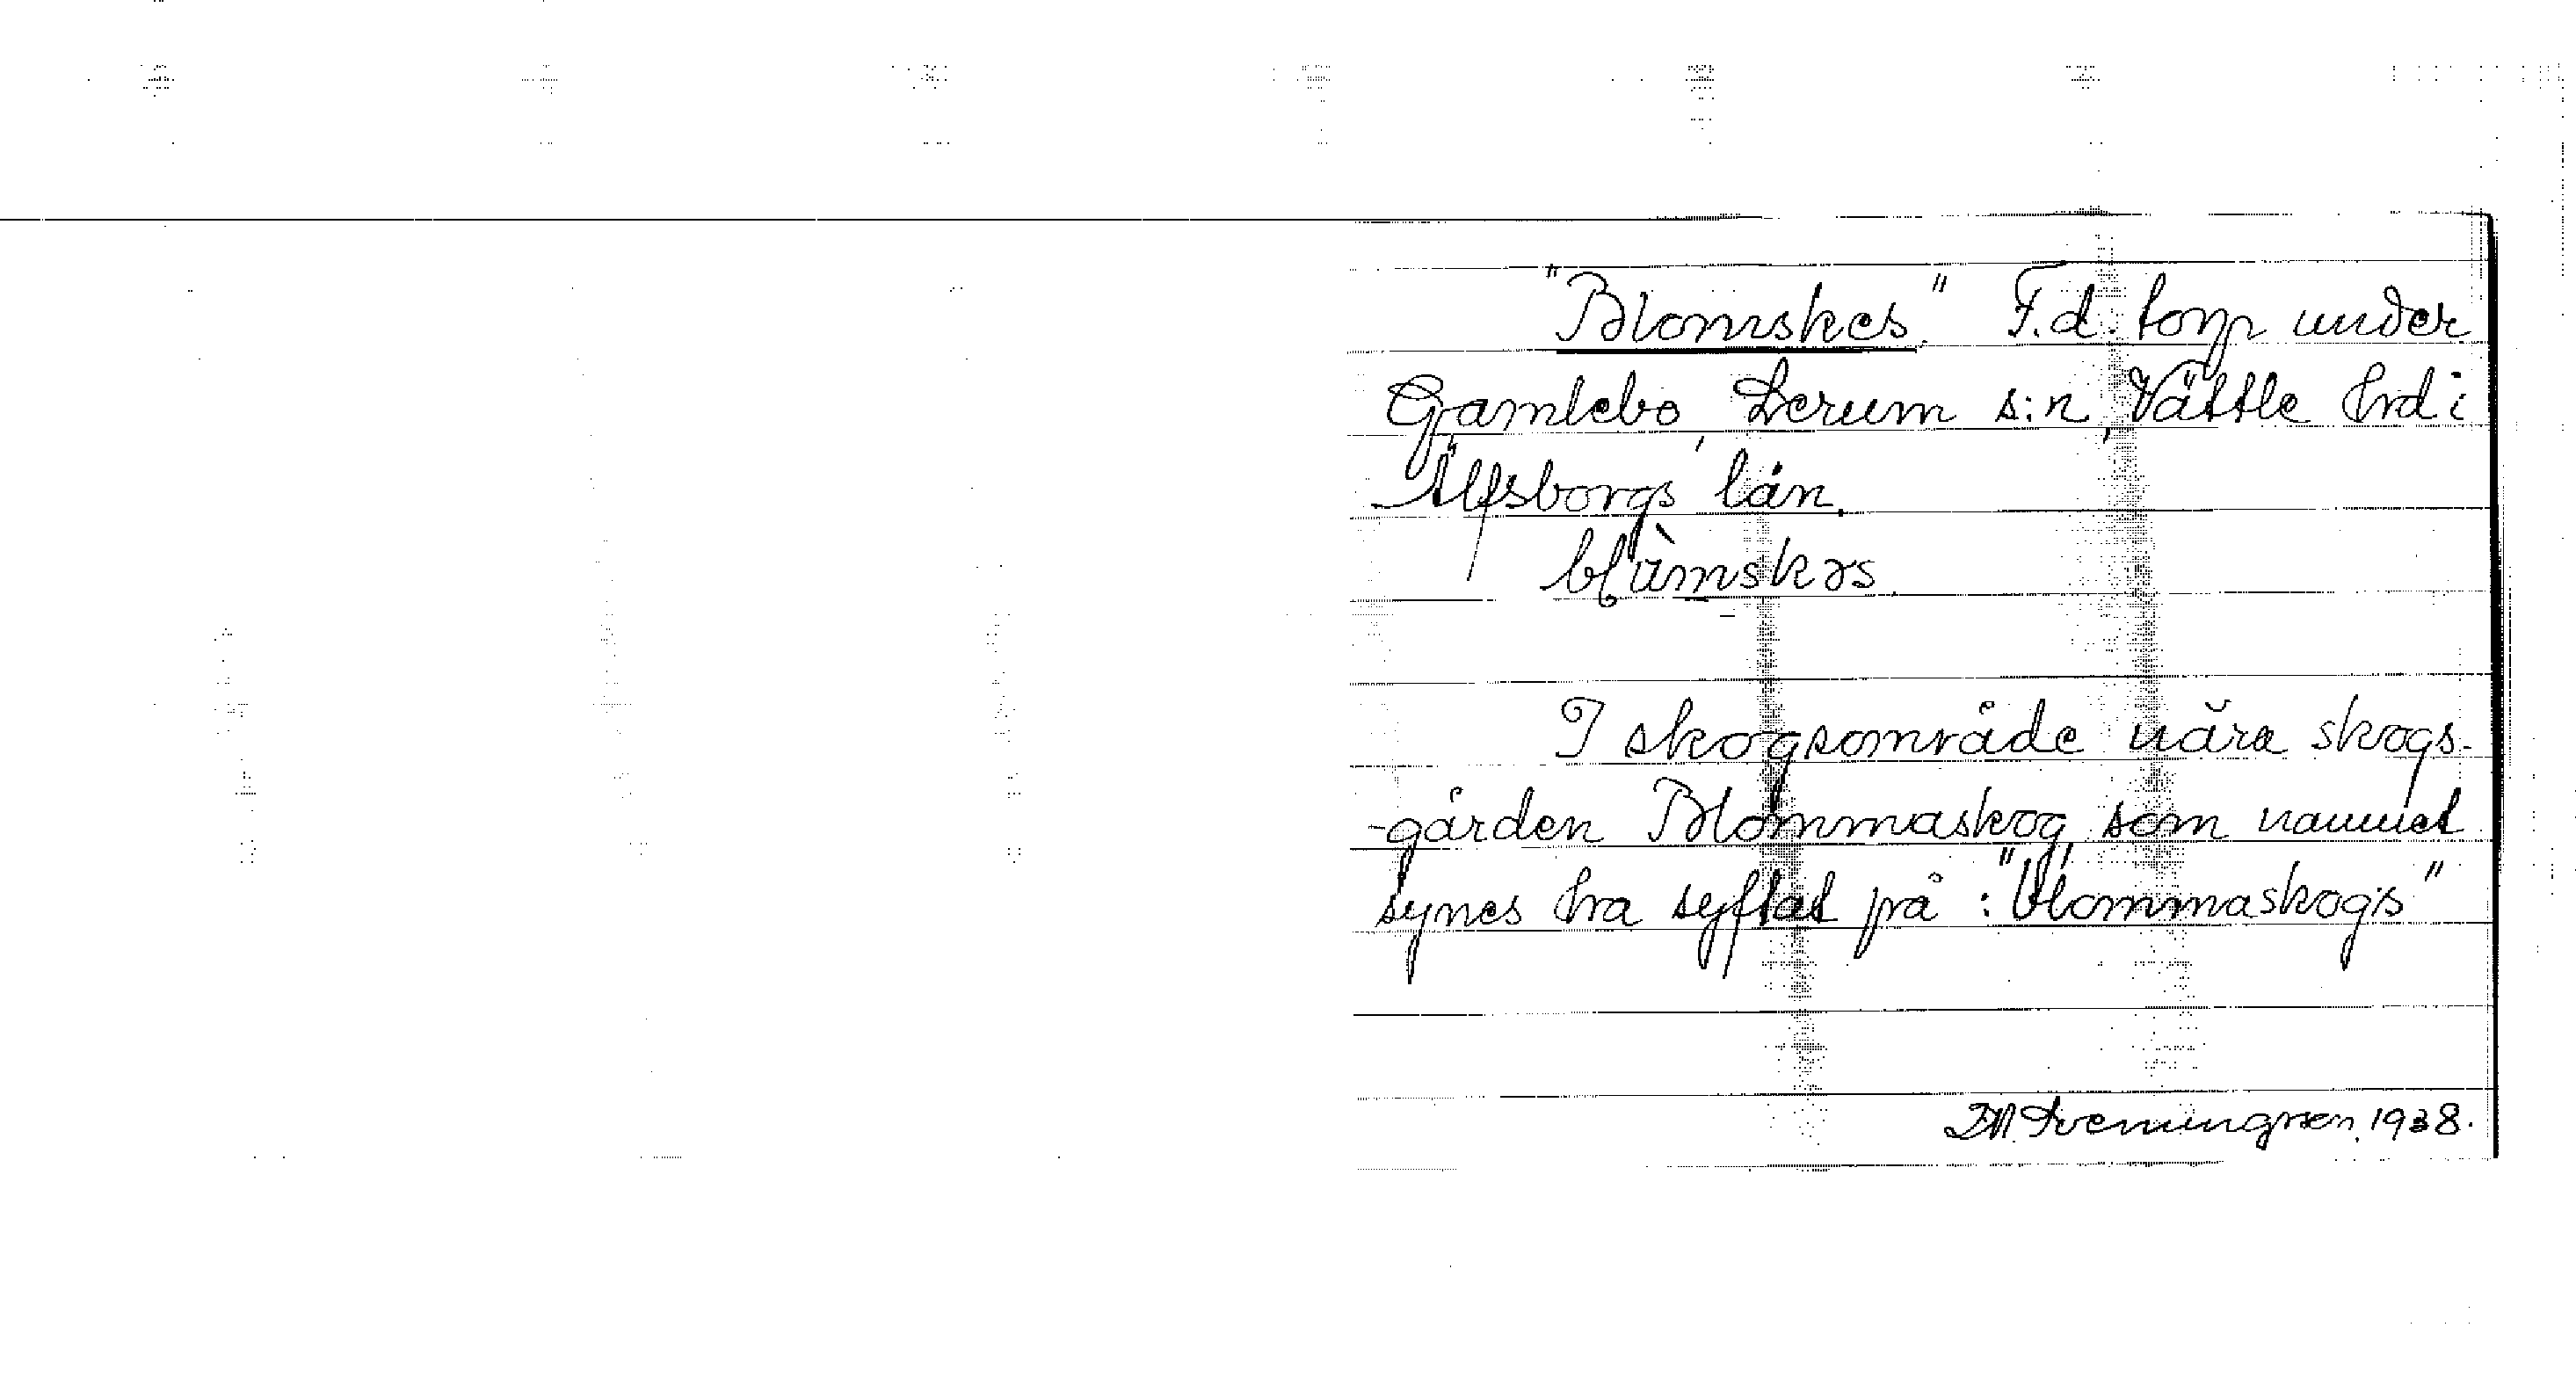 "Blomskes." F.d. torp under
Gamlebo, Lerum s:n, Vättle hrd i
Älfsborgs län.
I skogsområde nära skogs-
-gården Blommaskog, som namnet
synes ha syftat på: "blommaskogis"
Svenningsen, 1938.